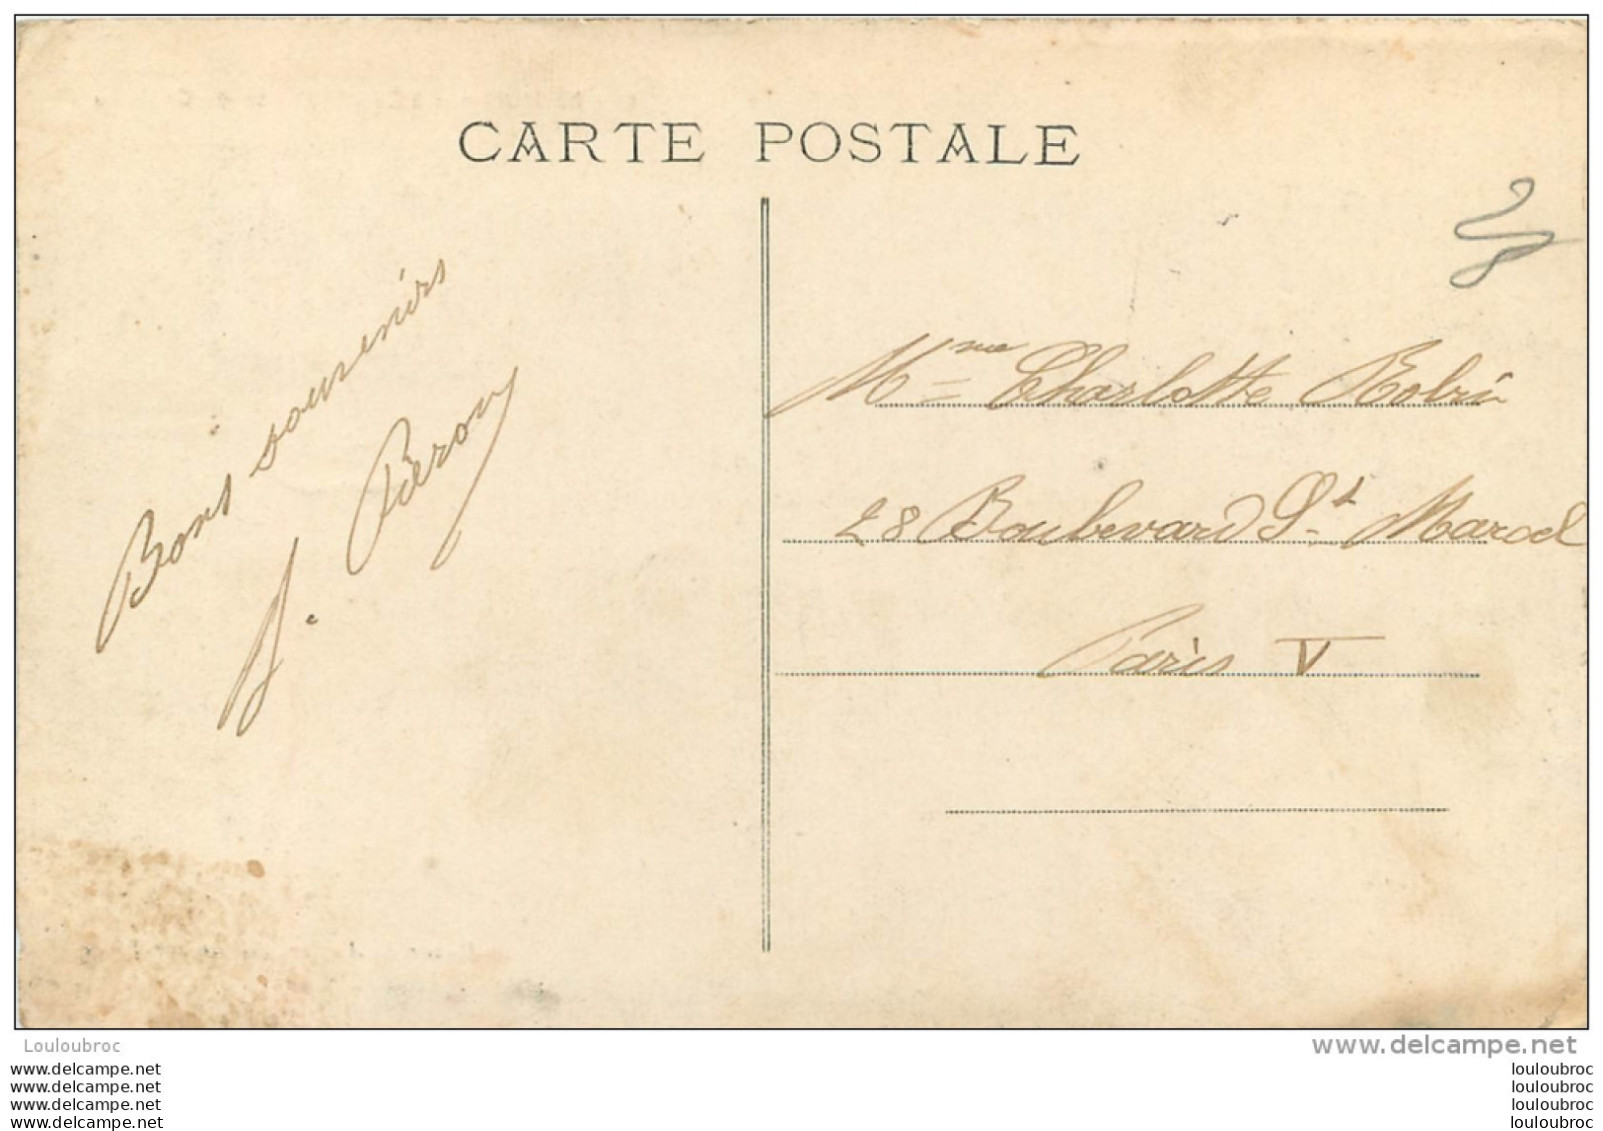 CARTE POSTALE
Bons souvenirs
Mme Charlotte Robin
28 Boulevard St Marcel
Paris V
Louloubroc
www.delcampe.net
www.delcampe.net
www.delcampe.net
www.delcampe.net
www.delcampe.net
louloubroc
louloubroc
louloubroc
louloubroc